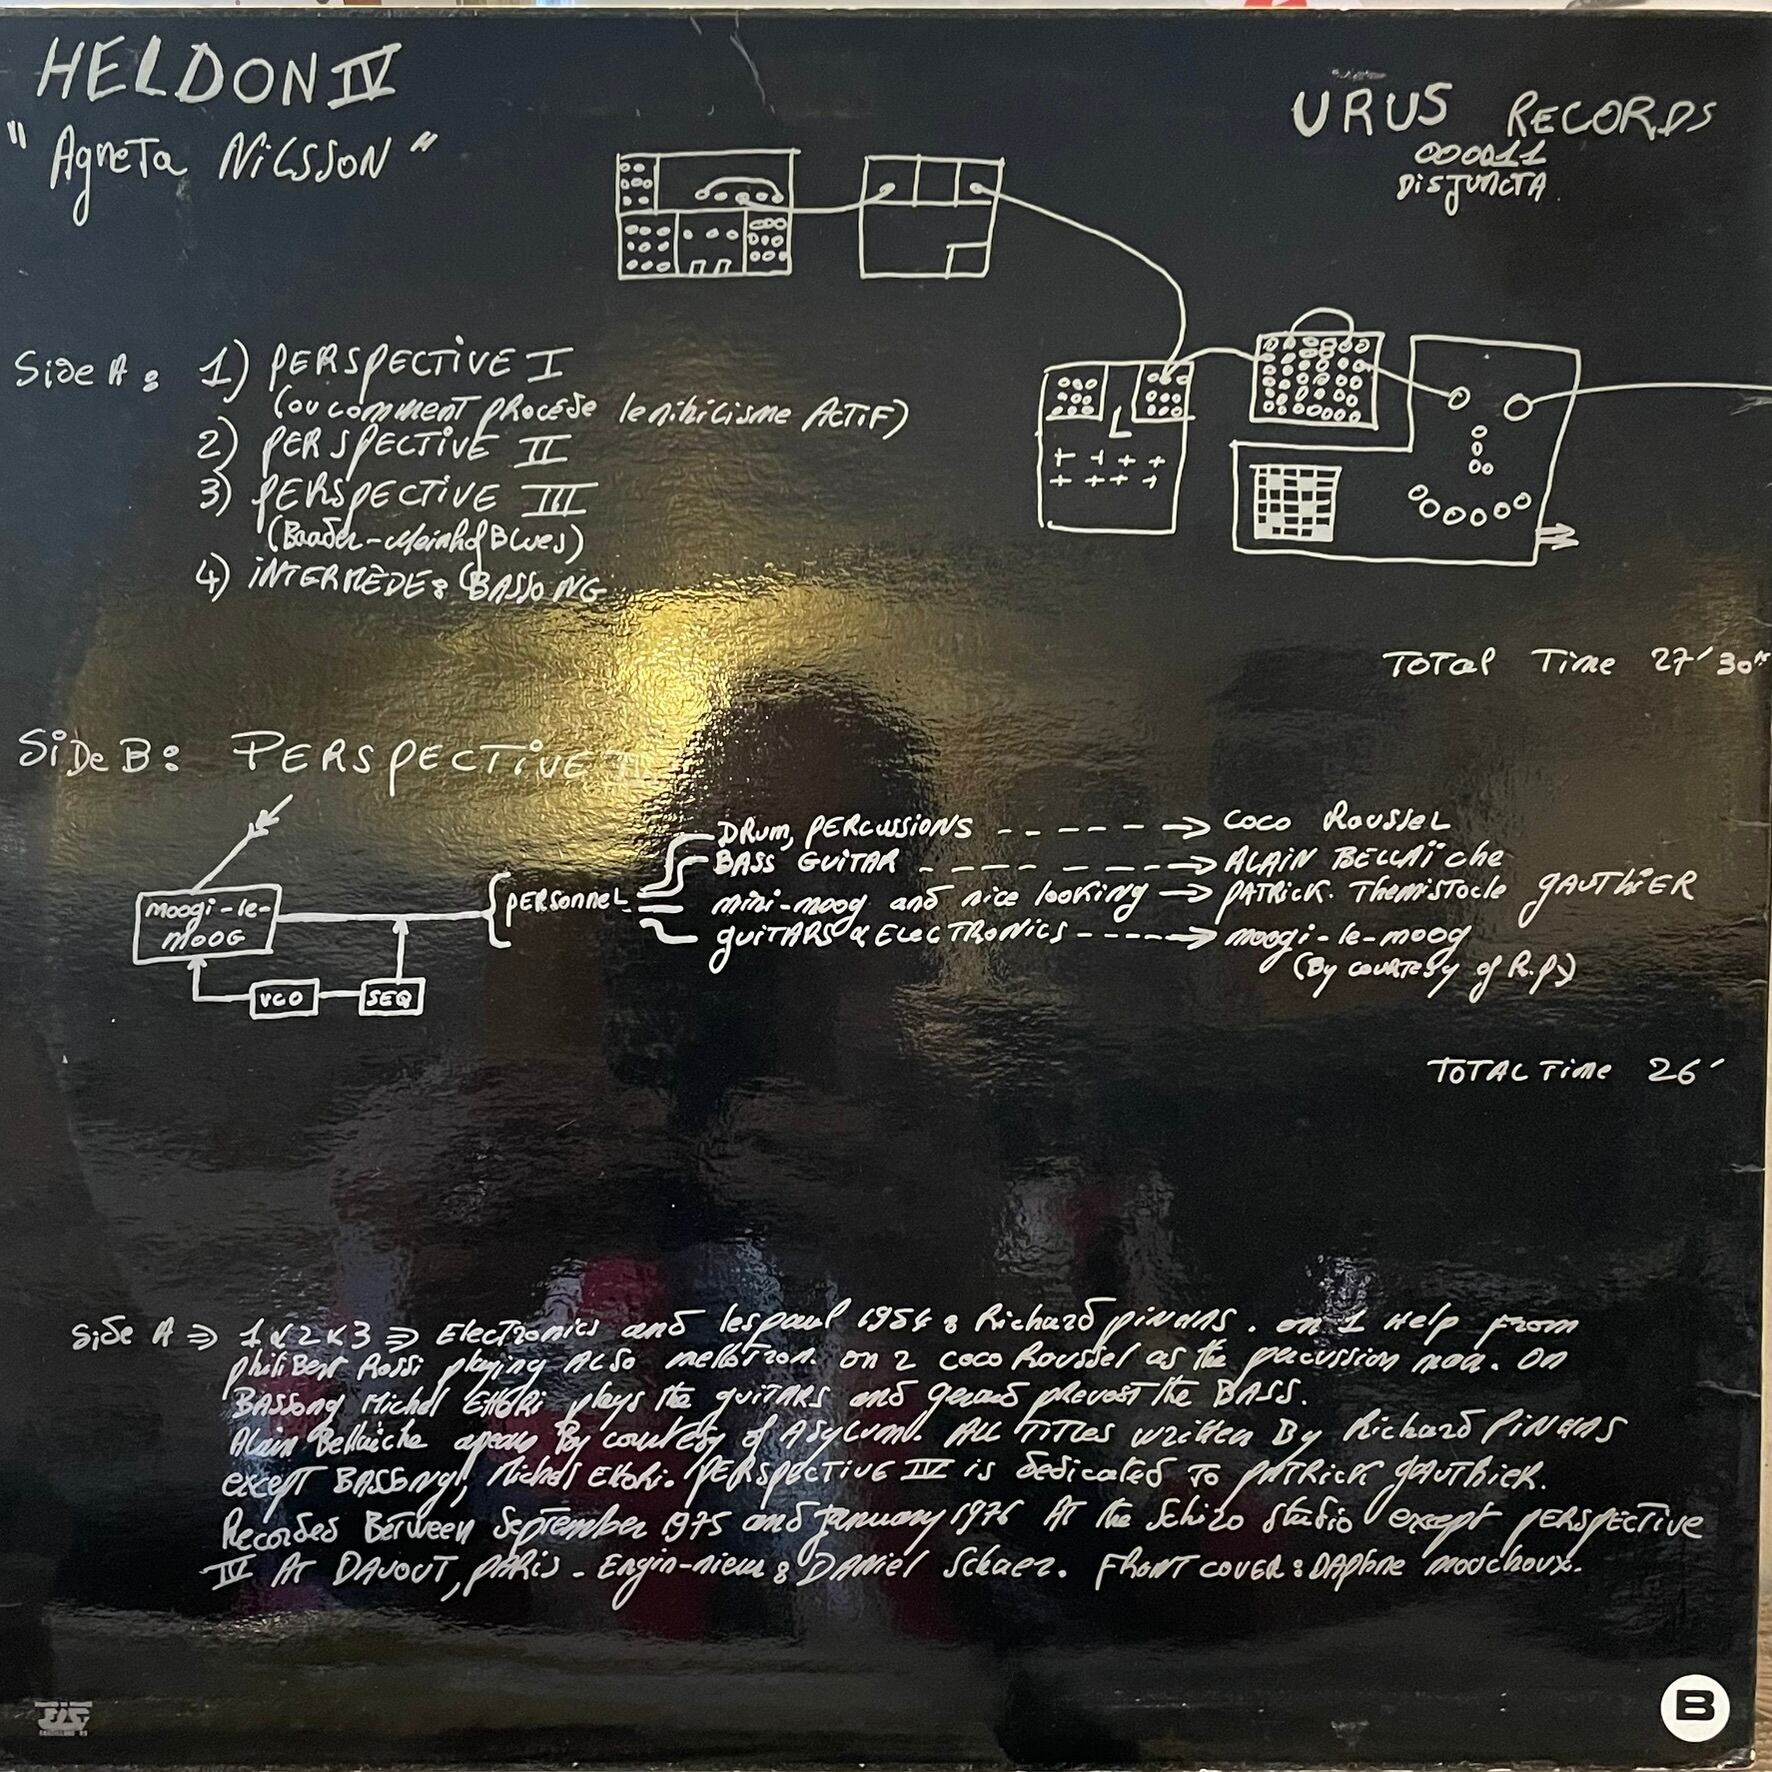 HELDON IV
"Agneta Nilsson"
URUS RECORDS
000011
DISJUNCTA
Side A: 1) PERSPECTIVE I
(ou comment procède le nihilisme ACTIF)
2) PERSPECTIVE II
3) PERSPECTIVE III
(Baader-Meinhof Blues)
4) INTERMÈDE: BASSONG
TOTAL Time 27' 30"
Side B: PERSPECTIVE
moogi-le-
moog
VCO
SEQ
PERSONNEL
DRUM, PERCUSSIONS - - - - - → COCO ROUSSEL
BASS GUITAR - - - - - - → ALAIN BELLAÏche
mini-moog and nice looking → PATRICK. Themistocle GAUTHIER
GUITARS & ELECTRONICS - - - - → moogi-le-moog
(By courtesy of R.P.)
TOTAL Time 26'
Side A ⇒ 1 & 2 & 3 ⇒ Electronics and lespaul 1954: Richard PINHAS. on 1 Help From
Philibert Rossi playing ALSO mellotron. on 2 Coco Roussel as the percussion man. On
BASSong Michel Ettori plays the guitars and gerard prevost the BASS.
Alain Bellaiche apears By courtesy of Asylum. All Titles written By Richard PINHAS
except BASSong, Michel Ettori. PERSPECTIVE IV is dedicated To PATRICK GAUTHIER.
Recorded Between September 1975 and January 1976 At the Schizo Studio except PERSPECTIVE
IV At DAVOUT, PARIS - Engin-nieur: DANIEL Schaer. FRONT COVER: DAPHNE MOUCHOUX.
B